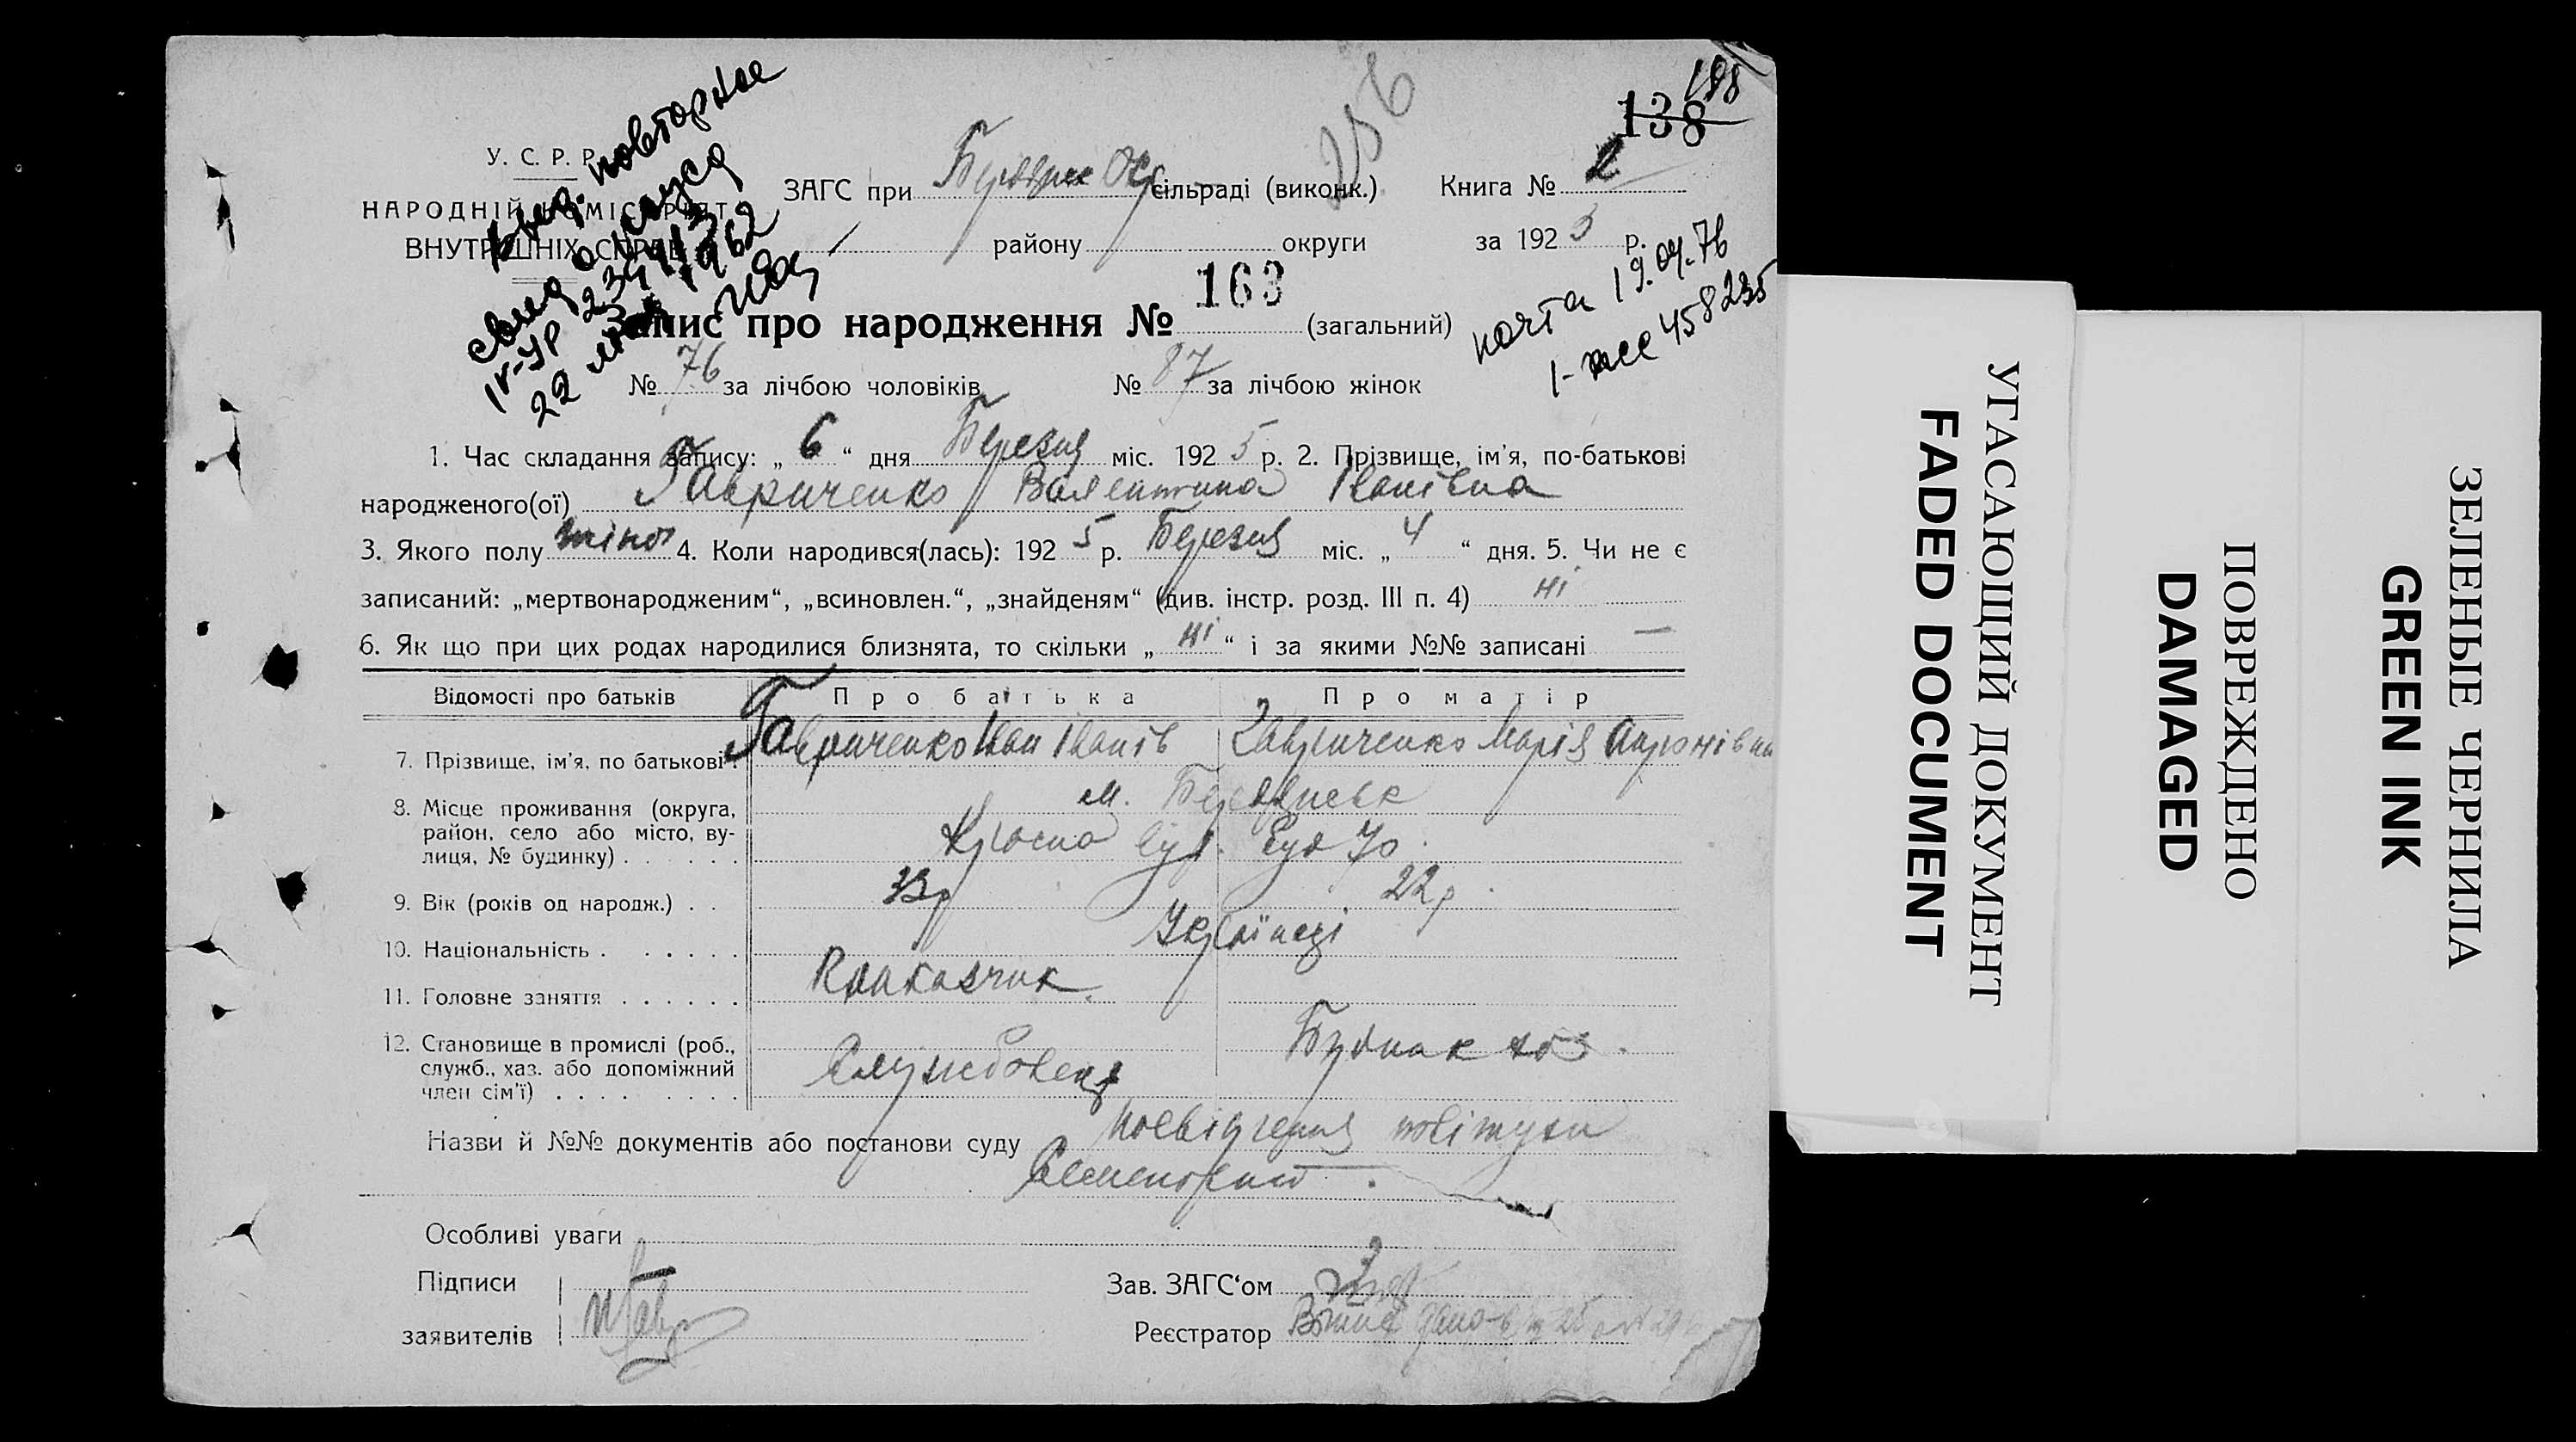 198
138
256
У. С. Р. Р.
НАРОДНІЙ КОМІСАРІЯТ
ВНУТРІШНІХ СПРАВ
повторное
22 мая 1962
ЗАГС при сільраді (виконк.) Книга № 2
району округи за 1925 р.
почта 19.04.76
458235
Запис про народження № 163 (загальний)
№ 76 за лічбою чоловіків № 87 за лічбою жінок
1. Час складання запису: „ 6 “ дня Березня міс. 1925 р. 2. Прізвище, ім’я, по-батькові
народженого(ої) Гавриченко Валентина Іванівна
3. Якого полу жіноч 4. Коли народився(лась): 1925 р. Березня міс. „ 4 “ дня. 5. Чи не є
записаний: „мертвонародженим“, „всиновлен.“, „знайденям“ (див. інстр. розд. III п. 4) ні
6. Як що при цих родах народилися близнята, то скільки „ ні “ і за якими №№ записані —
Відомості про батьків Про батька Про матір
7. Прізвище, ім’я, по батькові. Гавриченко Іван Іванів Гавриченко Марія
8. Місце проживання (округа, район, село або місто, вулиця, № будинку) м. Бердянськ
Красна вул. буд 70
9. Вік (років од народж.) 33р 22р.
10. Національність Українці
11. Головне заняття
12. Становище в промислі (роб., служб., хаз. або допоміжний член сім’ї) Службовець
Назви й №№ документів або постанови суду посвідчення повітухи
Особливі уваги
Підписи
заявителів
Зав. ЗАГС‘ом
Реєстратор
УГАСАЮЩИЙ ДОКУМЕНТ
FADED DOCUMENT
ПОВРЕЖДЕНО
DAMAGED
ЗЕЛЕНЫЕ ЧЕРНИЛА
GREEN INK